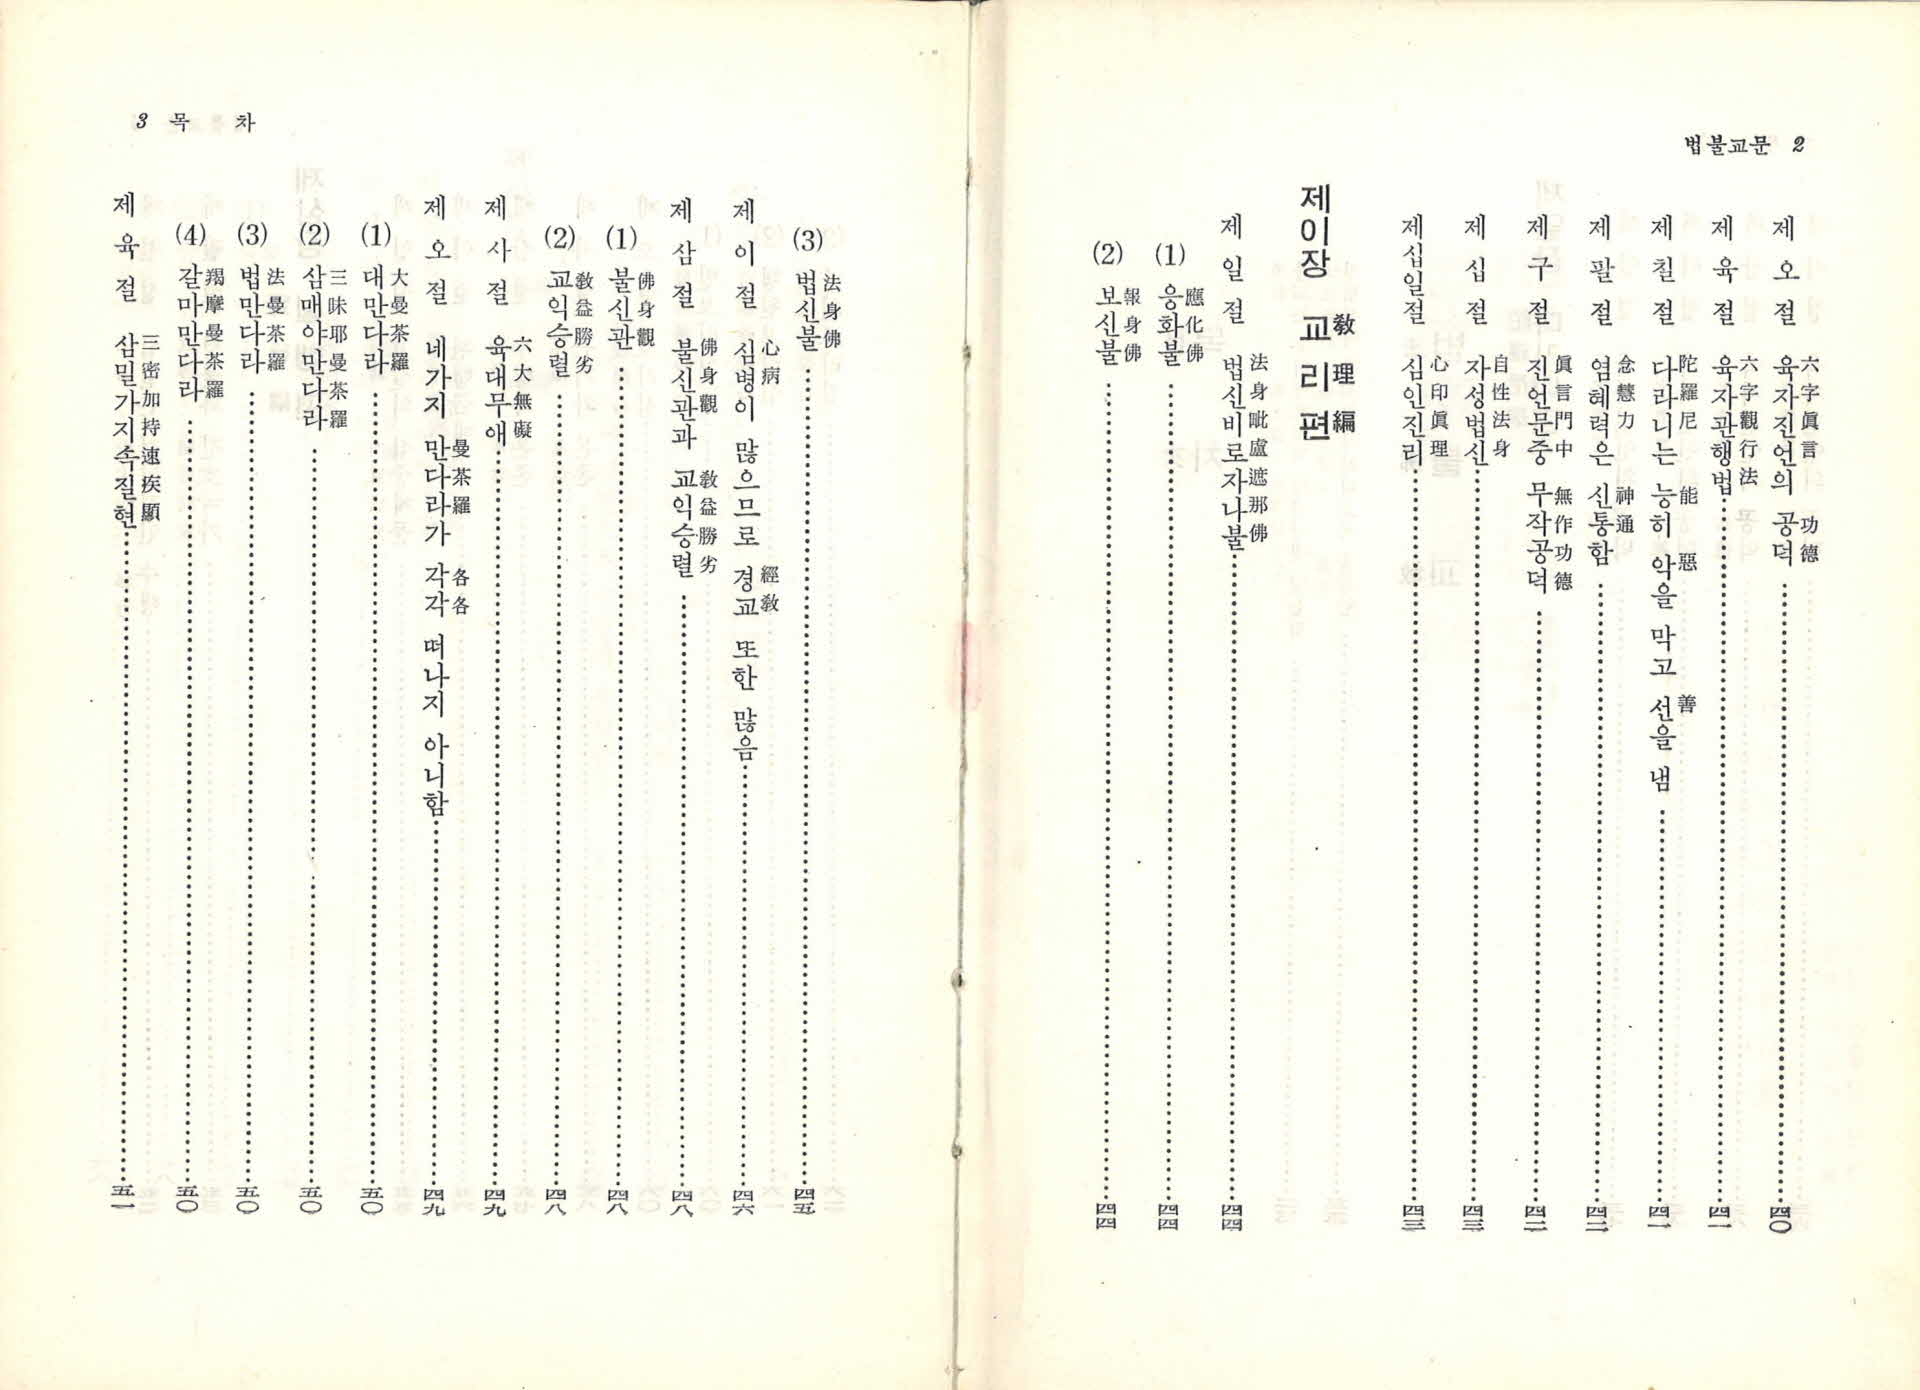 법불교문 2
제오절 육자진언의 공덕 四〇
六字眞言 功德
제육절 육자관행법 四一
六字觀行法
제칠절 다라니는 능히 악을 막고 선을 냄 四一
陀羅尼 能 惡 善
제팔절 염혜력은 신통함 四二
念慧力 神通
제구절 진언문중 무작공덕 四二
眞言門中 無作功德
제십절 자성법신 四三
自性法身
제십일절 심인진리 四三
心印眞理
제이장 교리편
敎理編
제일절 법신비로자나불 四四
法身毗盧遮那佛
(1) 응화불 四四
應化佛
(2) 보신불 四四
報身佛
3 목 차
(3) 법신불 四五
法身佛
제이절 심병이 많으므로 경교 또한 많음 四六
心病 經敎
제삼절 불신관과 교익승렬 四八
佛身觀 敎益勝劣
(1) 불신관 四八
佛身觀
(2) 교익승렬 四八
敎益勝劣
제사절 육대무애 四九
六大無礙
제오절 네가지 만다라가 각각 떠나지 아니함 四九
曼茶羅 各各
(1) 대만다라 五〇
大曼茶羅
(2) 삼매야만다라 五〇
三昧耶曼茶羅
(3) 법만다라 五〇
法曼茶羅
(4) 갈마만다라 五〇
羯摩曼茶羅
제육절 삼밀가지속질현 五一
三密加持速疾顯